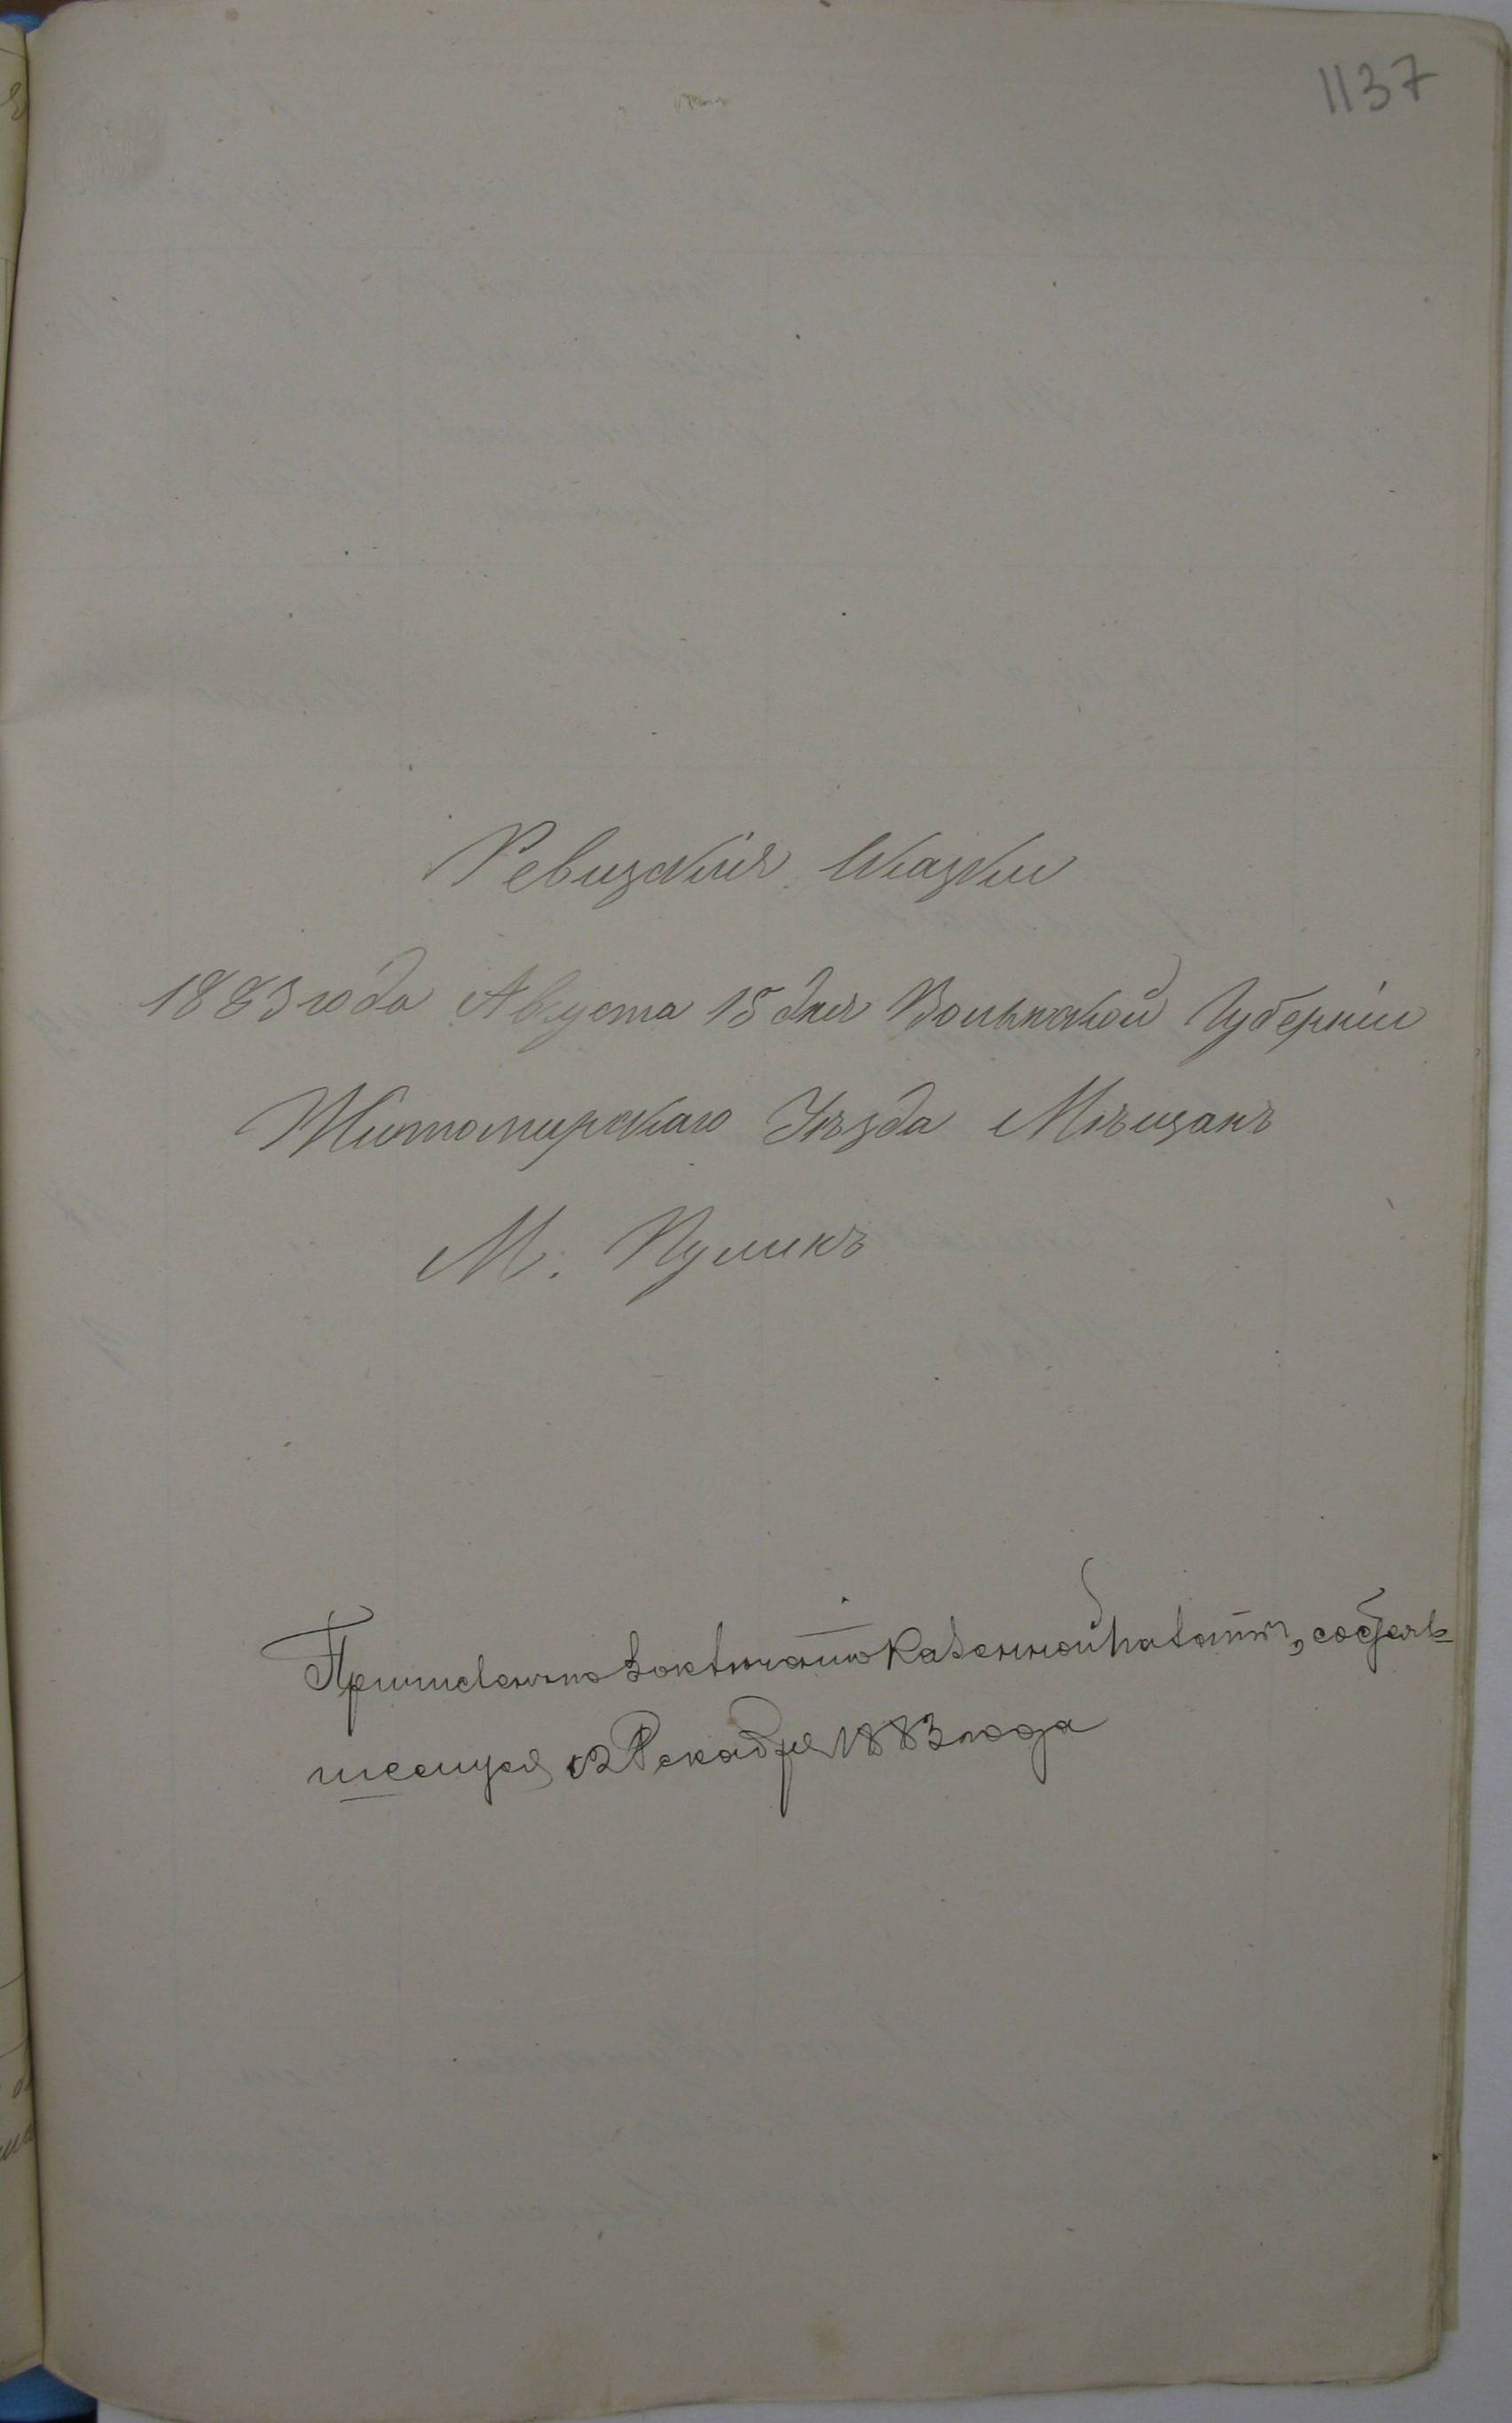 1137
Ревизскія Сказки
1883 года Августа 15 дня Волынской Губерніи
Житомирскаго Уѣзда Мѣщанъ
М. Пулинъ
Казенной Палаты, состояв-
шемуся 2 Декабря 1883 года